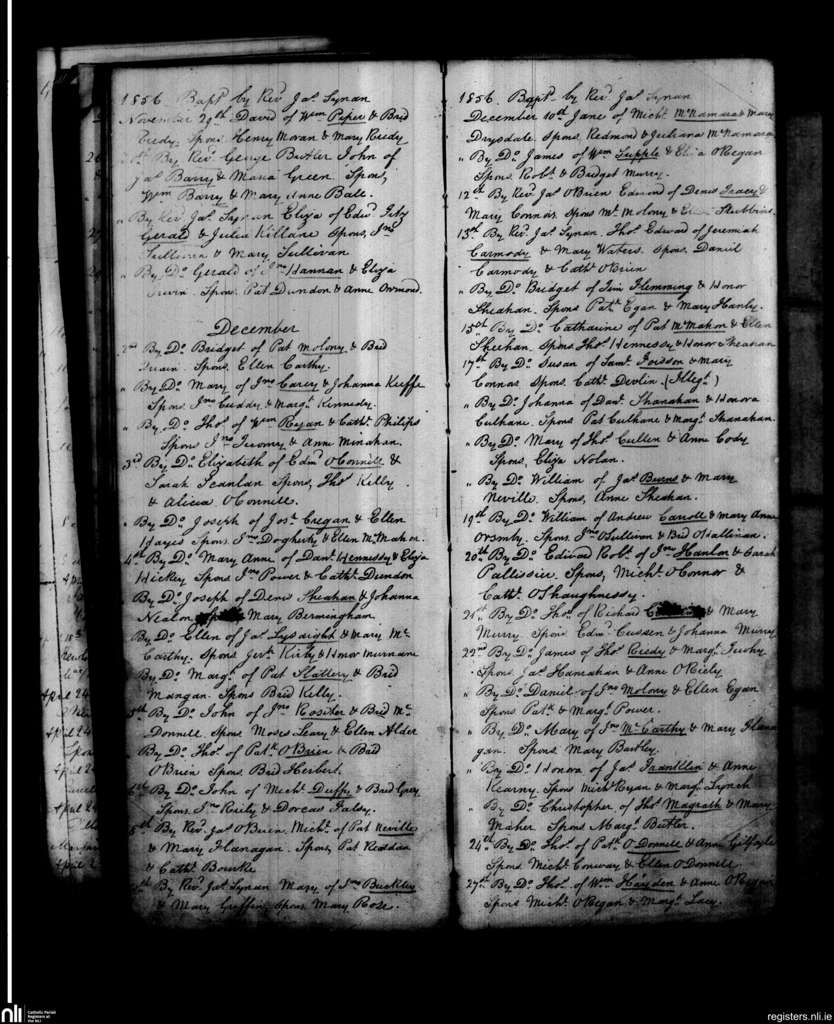 1856 Bapt by Revd Jas Synan
November 27th David of Wm Piper & Brid
Reedy. Spons Henry Moran & Mary Reedy
By Revd George Butler John of
Jas Barry & Maria Green. Spons,
Wm Barry & Mary Anne Ball.
" By Revd Jas Synan Eliza of Edwd Fitz
Gerald & Julia Killane Spons, Jno
Sullivan & Mary Sullivan
" By Do Gerald of Jno Hannan & Eliza
Spons Pat Dundon & Anne Ormond.
December
2nd By Do Bridget of Pat Molony & Brid
Spons. Ellen Carthy.
" By Do Mary of Jno Carey & Johanna Keeffe
Spons. Jno Cuddy & Margt Kennedy.
" By Do Thos of Wm Ryan & Cathe Philips
Spons Jno Twomy & Anne Minahan.
3rd By Do Elizabeth of Edmd O'Connell &
Sarah Scanlan Spons, Thos Kelly
& Alicia O'Connell.
" By Do Joseph of Jos. Cregan & Ellen
Hayes Spons Jno Dogherty & Ellen McMahon.
4th By Do Mary Anne of Danl Hennessy & Eliza
Hickey Spons Jno Power & Cathe Dundon
By Do Joseph of Denis Sheahan & Johanna
Nealon Mary Bermingham
By Do Ellen of Jas Lysaight & Mary Mc
Carthy. Spons Jerh Kirby & Honor Murnane
By Do Margt of Pat Slattery & Brid
Mangan Spons Brid Kelly.
5th By Do John of Jno Rositer & Brid Mc
Donnell Spons Moses Leary & Ellen Alder
By Do Thos of Patk O'Brien & Brid
O'Brien Spons Brid Herbert.
By Do John of Michl Duffy & Brid Grey
Spons Jno Reily & Dorcas Falsy.
By Revd Jas O'Brien Michl of Pat Neville
& Mary Flanagan. Spons, Pat Reddan
& Cathe Bourke
By Revd Jas Synan Mary of Jno Buckley
& Mary Griffin Spons Mary Rose.
1856. Bapt by Revd Jas Synan
December 10th Jane of Michl McNamara & Mary
Drysdale Spons Redmond & Juliana McNamara
" By Do James of Wm Supple & Eliza O'Regan
Spons Robt & Bridget Murry.
12th By Revd Jas O'Brien Edmond of Denis Tracey &
Mary Connors Spons Mt Molony & Stubbins
13th By Revd Jas Synan Thos Edward of Jeremiah
Carmody & Mary Waters Spons. Daniel
Carmody & Cathe O'Brien
" By Do Bridget of Tim Flemming & Honor
Sheahan. Spons Patk Egan & Mary Hanly.
15th By Do Catharine of Pat McMahon & Ellen
Sheehan Spons. Thos Hennessy & Honor Sheahan
17th By Do Susan of Saml & Mary
Connors Spons. Cathe Devlin. (Illegt)
" By Do Johanna of Danl Shanahan & Honora
Culhane. Spons Pat Culhane & Margt Shanahan.
" By Do Mary of Thos Cullen & Anne Cody
Spons, Eliza Nolan.
" By Do William of Jas Burns & Mary
Neville Spons, Anne Sheahan.
19th By Do William of Andrew Carroll & Mary Anne
Ormsby. Spons Jno Sullivan & Brid O'Hallinan.
20th By Do Edward Robt of Jno Hanlon & Sarah
Pallissier Spons, Michl O'Connor &
Cathe O'Shaughnessy.
21st By Do Thos of Richard & Mary
Murry Spons Edmd Cussen & Johanna Murry
22nd By Do James of Thos Reedy & Margt Tuohy
Spons Jas Hannahan & Anne O'Riely
" By Do Daniel of Jno Molony & Ellen Egan
Spons Patk & Margt Power.
" By Do Mary of Jno McCarthy & Mary Flana
gan. Spons Mary Bartley.
" By Do Honora of Jas & Anne
Kearny. Spons Michl Ryan & Margt Lynch
" By Do Christopher of Thos Magrath & Mary
Maher Spons Margt Butler.
24th By Do Thos of Patk O'Donnell & Anne Gilfoyle
Spons Michl Conway & Ellen O'Donnell
27th By Do Thos of Wm Hayden & Anne O'Regan
Spons Michl O'Regan & Margt Lacy.
April 24
April 24
April 24
April 24
nli
Catholic Parish
Registers at
the NLI
registers.nli.ie